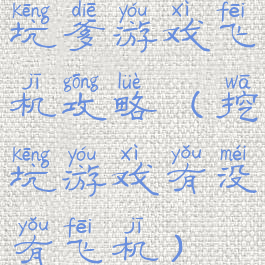 kēng diē yóu xì fēi
坑爹游戏飞
jī gōng lüè wā
机攻略（挖
kēng yóu xì yǒu méi
坑游戏有没
yǒu fēi jī
有飞机）